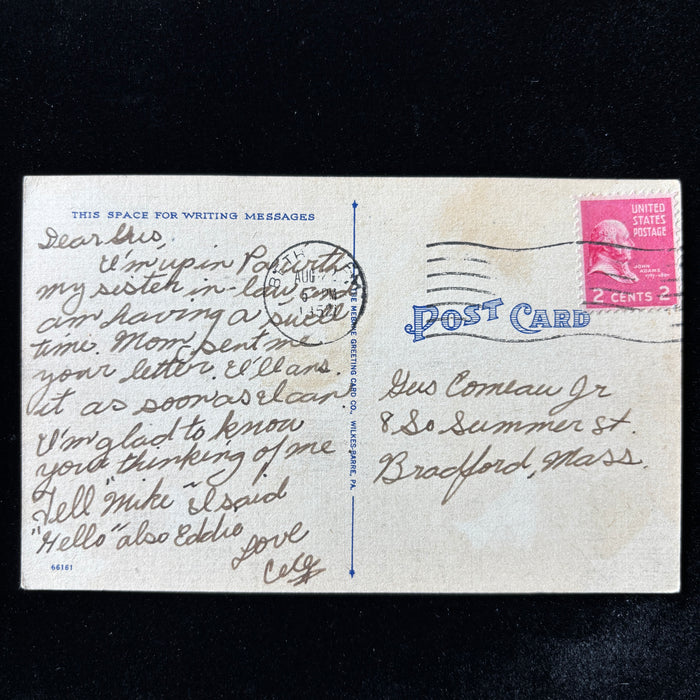 THIS SPACE FOR WRITING MESSAGES
Dear Gus,
I'm up in Pa with
my sister in-law and
am having a swell
time. Mom sent me
your letter. I'll ans.
it as soon as I can.
I'm glad to know
your thinking of me
Tell "Mike" I said
"Hello" also Eddie
Love
66161
BATH
AUG
PM
1952
MEBANE GREETING CARD CO., WILKES-BARRE, PA.
UNITED
STATES
POSTAGE
JOHN
ADAMS
2 CENTS 2
POST CARD
Gus Comeau Jr
8 So Summer st.
Bradford, Mass.